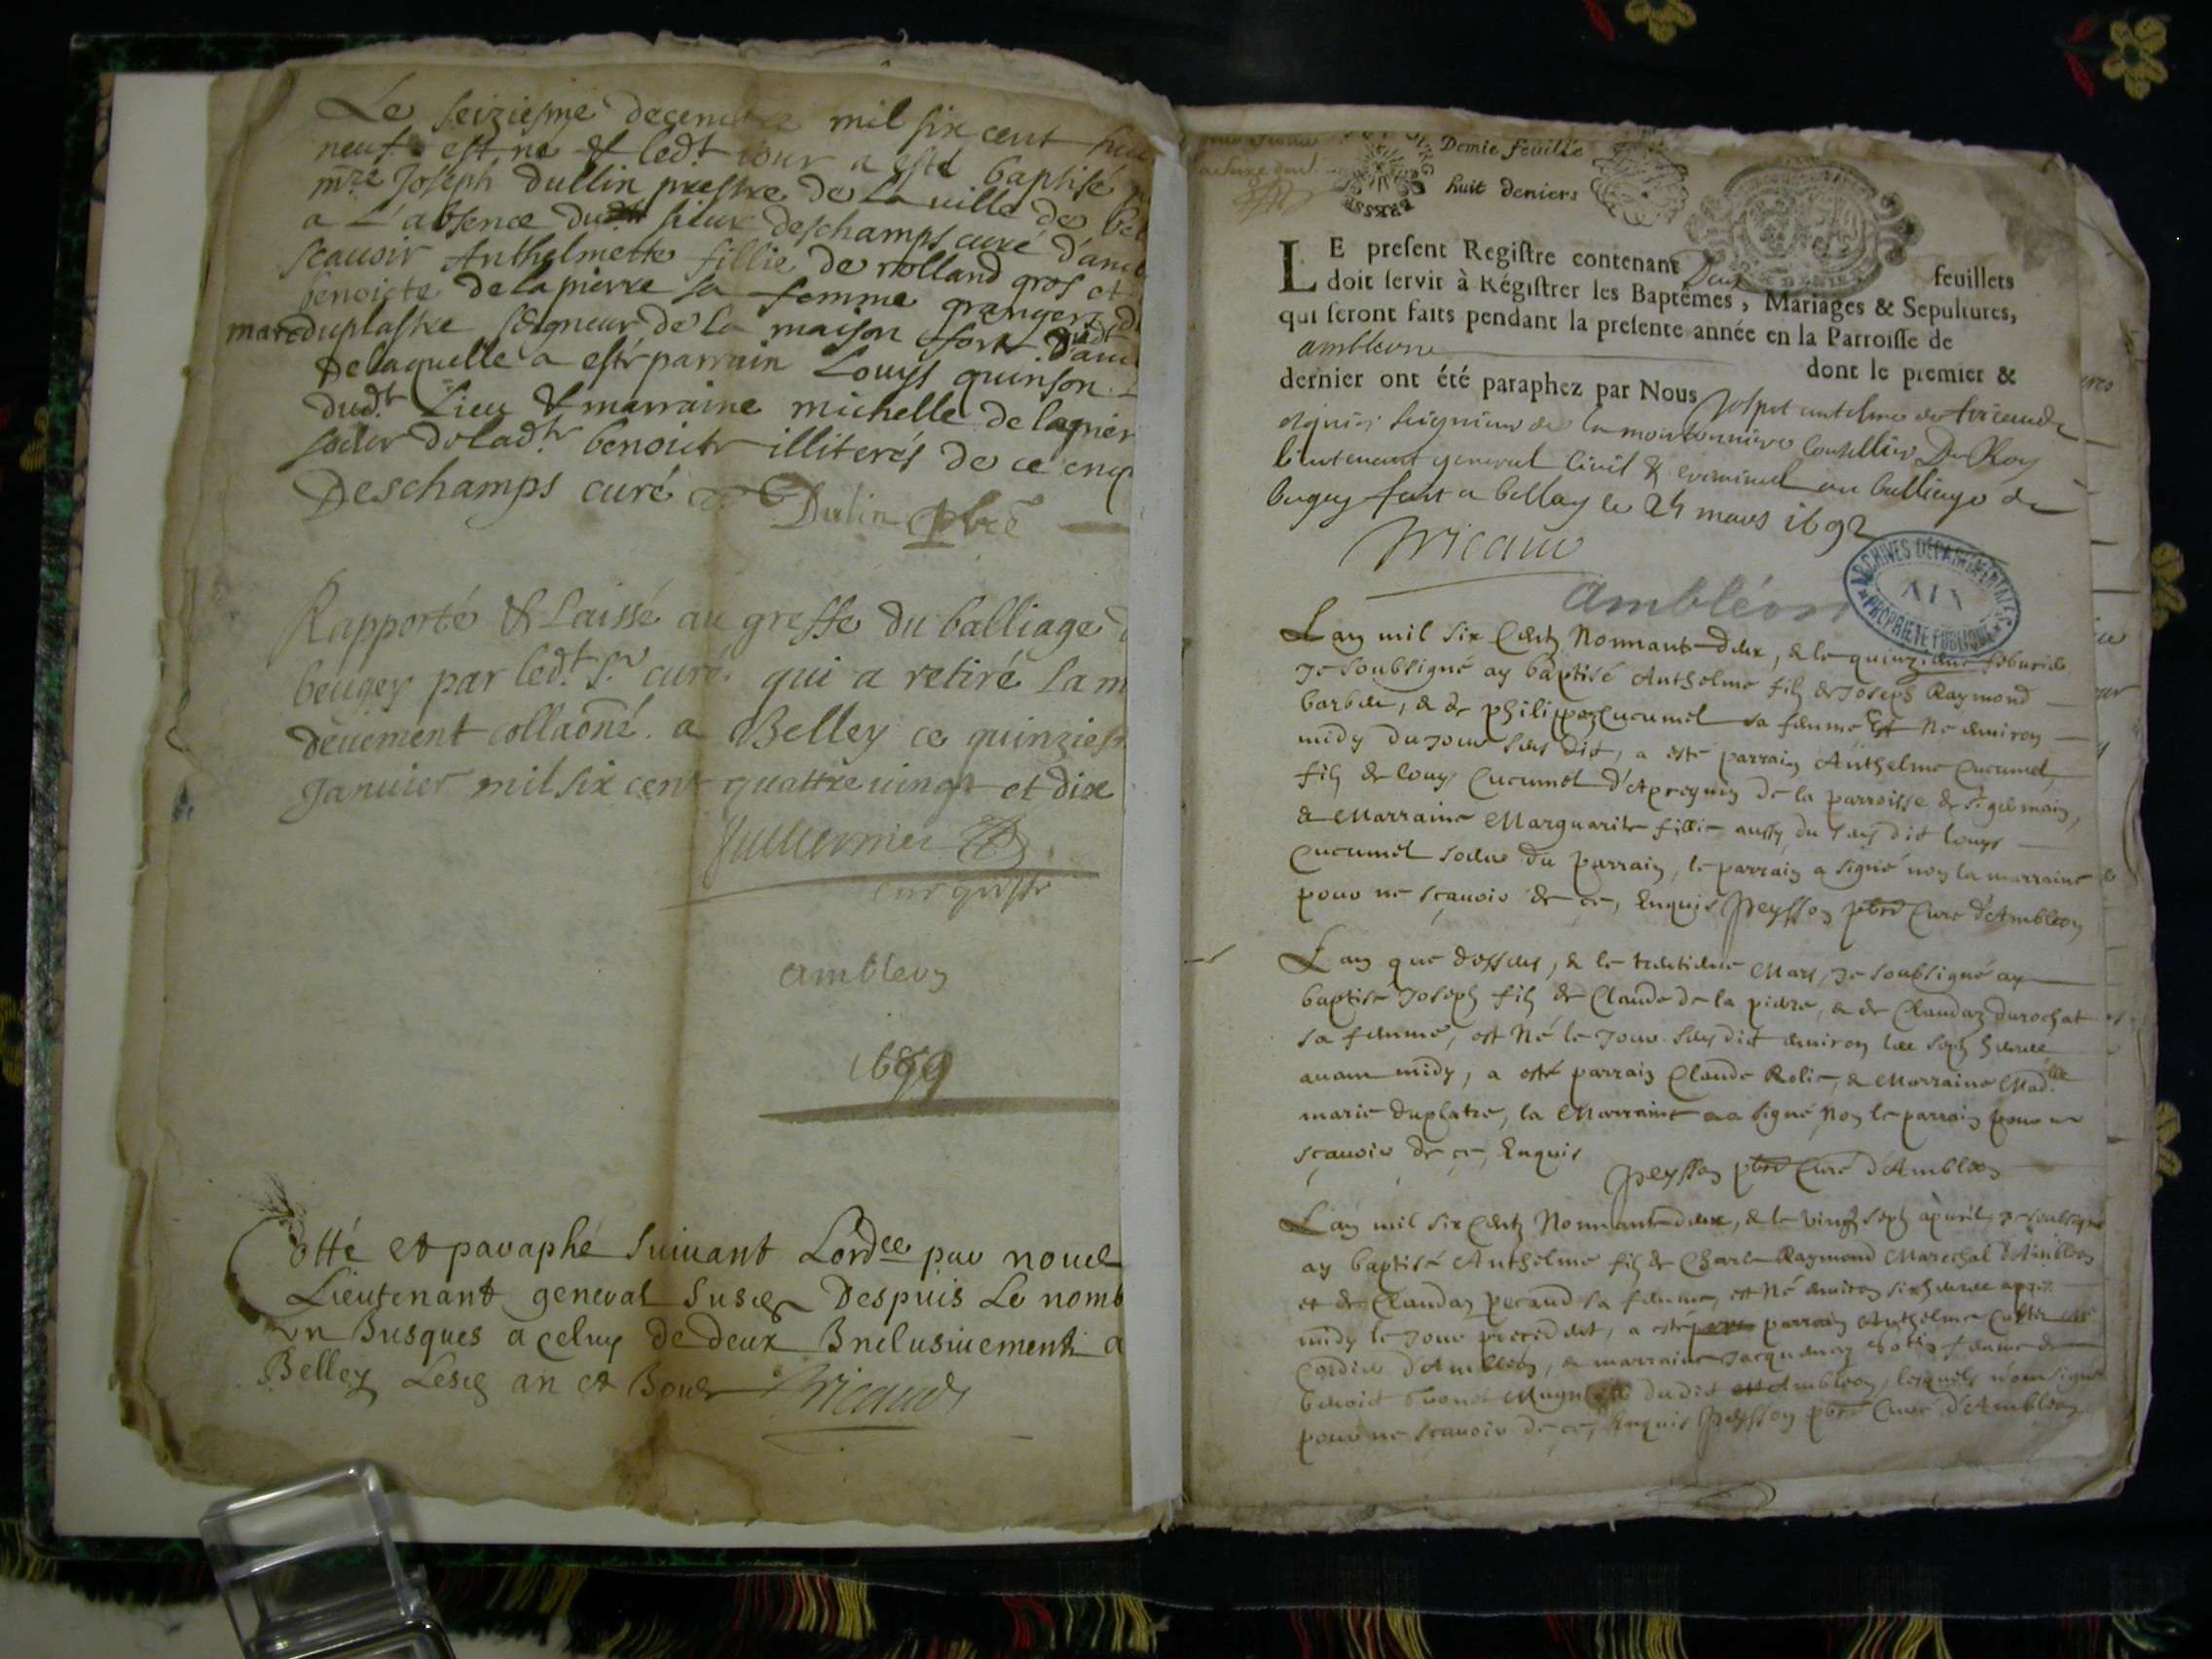 Le seiziesme decembre mil six cent
neuf est né & led.t jour a esté baptisé
m.re Joseph dullin prestre de La ville de bel
a L'absence dud.t sieur deschamps curé d'am
scauoir Anthelmette fillie de rolland gros et
benoicte delapierre sa femme granger
marc duplastre seigneur de La maison forte d'am
De laquelle a esté parrain Louys quinson
dud.t Lieu & marraine michelle de lapier
soeur de lad.te benoicte illiterés de ce enq
Deschamps curé Dulin pbre
Rapporté & Laissé au greffe du balliage
beugey par led.t S.r curé qui a retiré La m
deuement collaoné. a Belley ce quinzies
Januier mil six cent quattre uingt et dix
ambleon
1689
Cotté et paraphé suiuant Lord.ce par nous
Lieutenant general susd Despuis Le nomb
un Jusques a celuy de deux Inclusiuement a
Belley Lesd an et Jour Tricaud
Demie feuille
huit deniers
LE present Registre contenant Deux feuillets
doit servir à Régistrer les Baptêmes, Mariages & Sepultures,
qui seront faits pendant la presente année en la Parroisse de
ambleon dont le premier &
dernier ont été paraphez par Nous Josept antelme de tricaud
seigneur de la Conseillier Du Roy
lieutenant general Civil & criminel au balliage de
bugey fait a belley le 24 mars 1692
Tricaud
Ambléon
ARCHIVES DÉPARTEMENTALES AIN PROPRIÉTÉ PUBLIQUE
L'an mil six Cents Nonnante deux, & le quinzieme feburier
Je soubsigné ay baptisé Anthelme fils de Joseph Raymond
barbier, & de philippaz Cucumel sa femme Est Né enuiron
midy du Jour sus dit, a esté parrain Anthelme Cucumel,
fils de louys Cucumel d'Apregnin de la parroisse de S.t germain,
& Marraine Marguarite fillie aussy du sus dit louys
Cucumel soeur du parrain, le parrain a signé non la marraine
pour ne sçauoir de ce, Enquis Peysson pbre Curé d'Ambleon
L'an que dessus, & le trentieme Mars, Je soubsigné ay
baptisé Joseph fils de Claude de la pierre, & de Claudaz durochat
sa femme, est Né le Jour sus dit enuiron les sept heures
auant midy, a esté parrain Claude Rolie, & Marraine Mad.lle
marie duplatre, la Marraine a signé Non le parrain pour ne
sçauoir de ce, Enquis
Peysson pbre Curé d'Ambleon
L'an mil six Cents Nonnante deux, & le vingt sept apuril, Je soubsigné
ay baptisé Anthelme fils de Charle Raymond Marechal d'Ambleon
et de Claudaz pecaud sa femme, est Né enuiron six heures apres
midy le Jour precedent, a esté parrain Anthelme
Cordier d'Ambleon, & marraine femme de
benoict du dit Ambleon, lesquels n'ont signé
pour ne scauoir de ce, Enquis Peysson pbre Curé d'Ambleon